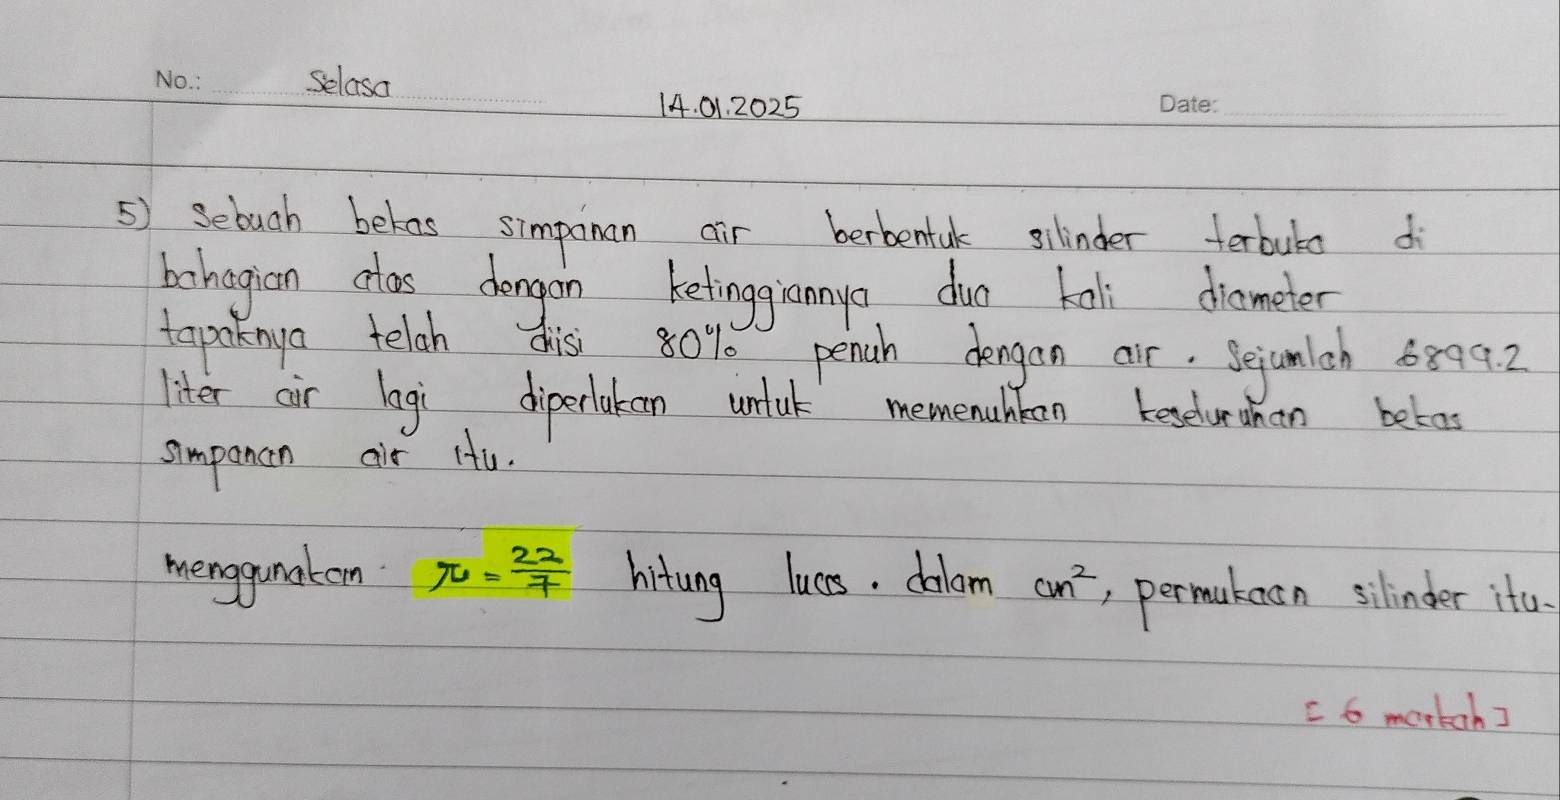 No.: Selasa 14.01.2025 Date:
5) Sebuah bekas simpanan air berbentuk silinder terbuka di
bahagian atas dengan ketinggiannya dua kali diameter
tapaknya telah diisi 80% penuh dengan air. Sejumlah 6899.2
liter air lagi diperlukan untuk memenuhkan keseluruhan bekas
simpanan air itu.
menggunakan π = 22/7 hitung luas. dalam cm², permukaan silinder itu.
[6 markah]